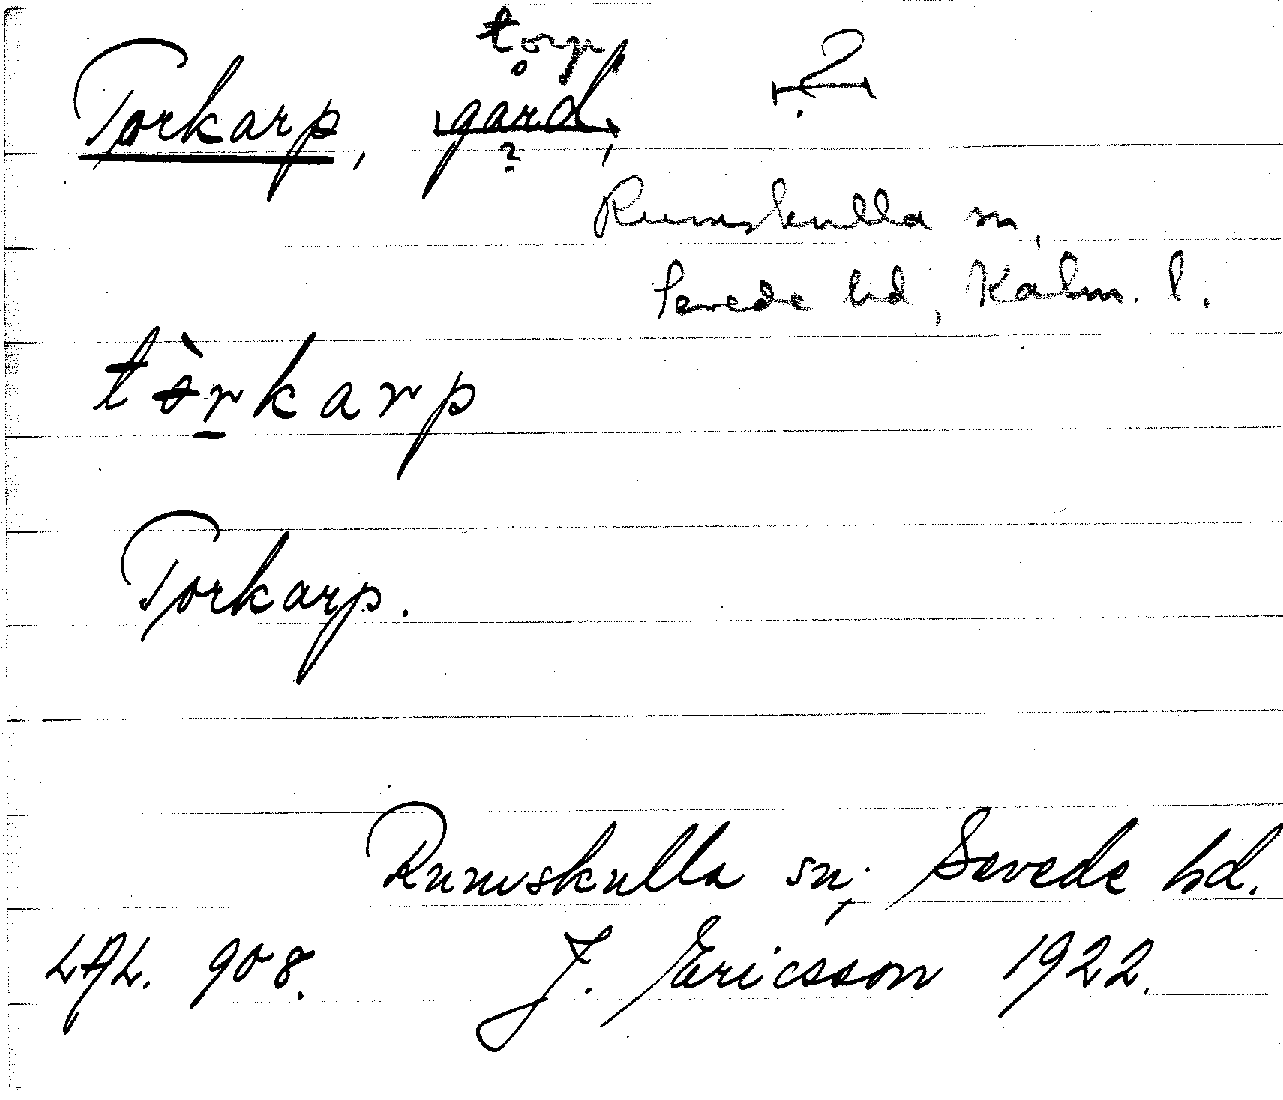 torp
Torkarp, gård, ?
?
Rumskulla sn,
Sevede hd, Kalm. l.
tòrkarp
Torkarp.
Rumskulla sn; Sevede hd.
908. J. Ericsson 1922.